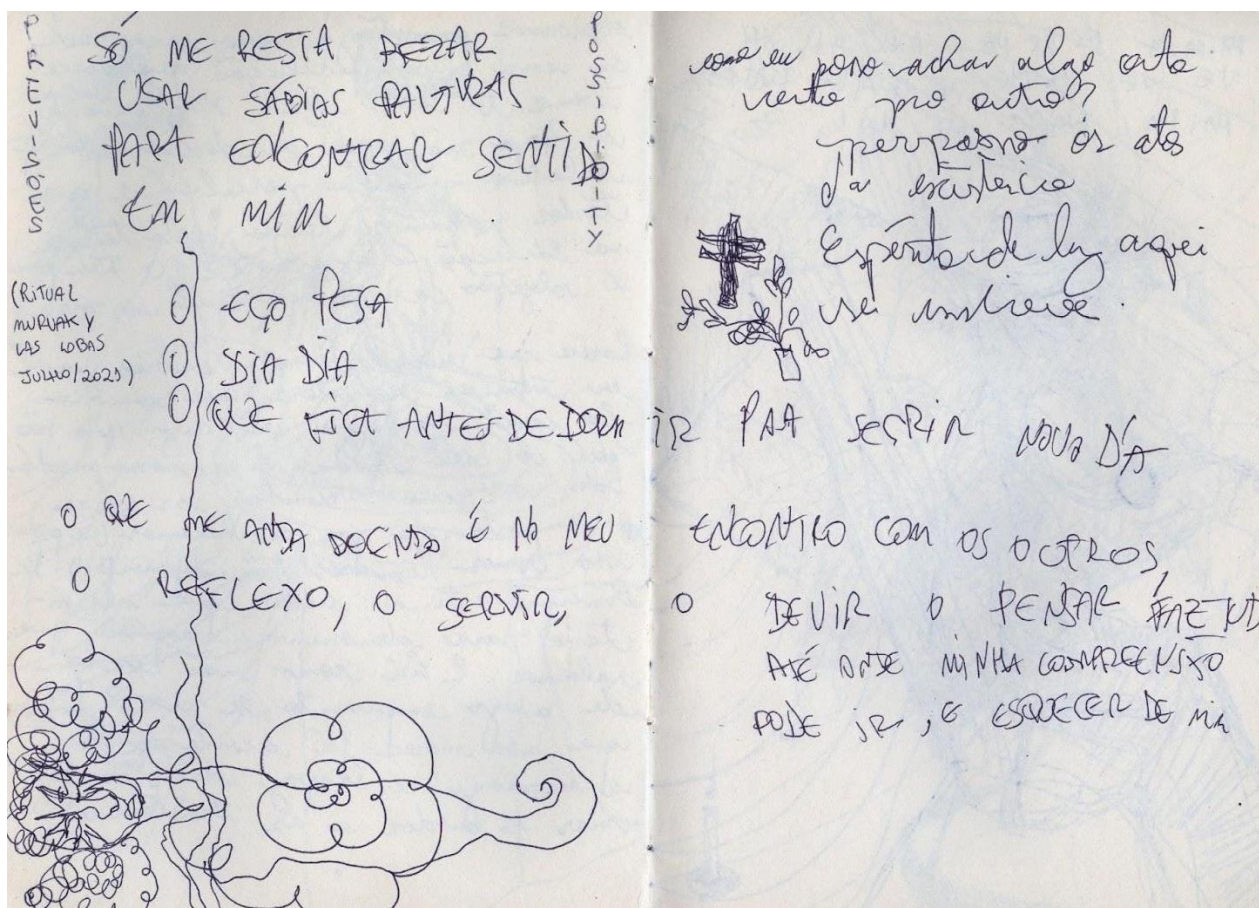 PREVISÕES
SÓ ME RESTA REZAR
USAR SÁBIAS PALAVRAS
PARA ENCONTRAR SENTIDO
EM MIM
POSSIBILITY
(RITUAL
MURUAK Y
LAS LOBAS
JULHO/2021)
O EGO PESA
O DIA DÍA
O QUE FICA ANTES DE DORMIR PAA SEGRIR NOVO DÍA
O QUE ME ANDA DOENDO É NO MEU ENCONTRO COM OS OUTROS
O REFLEXO, O SERVIR, O DEVIR O PENSAR,
ATÉ ONDE MINHA COMPREENSÃO
PODE IR, E ESQUECER DE MIM
como eu posso achar algo
perpassar os atos
da existência
Espírito de luz aqui